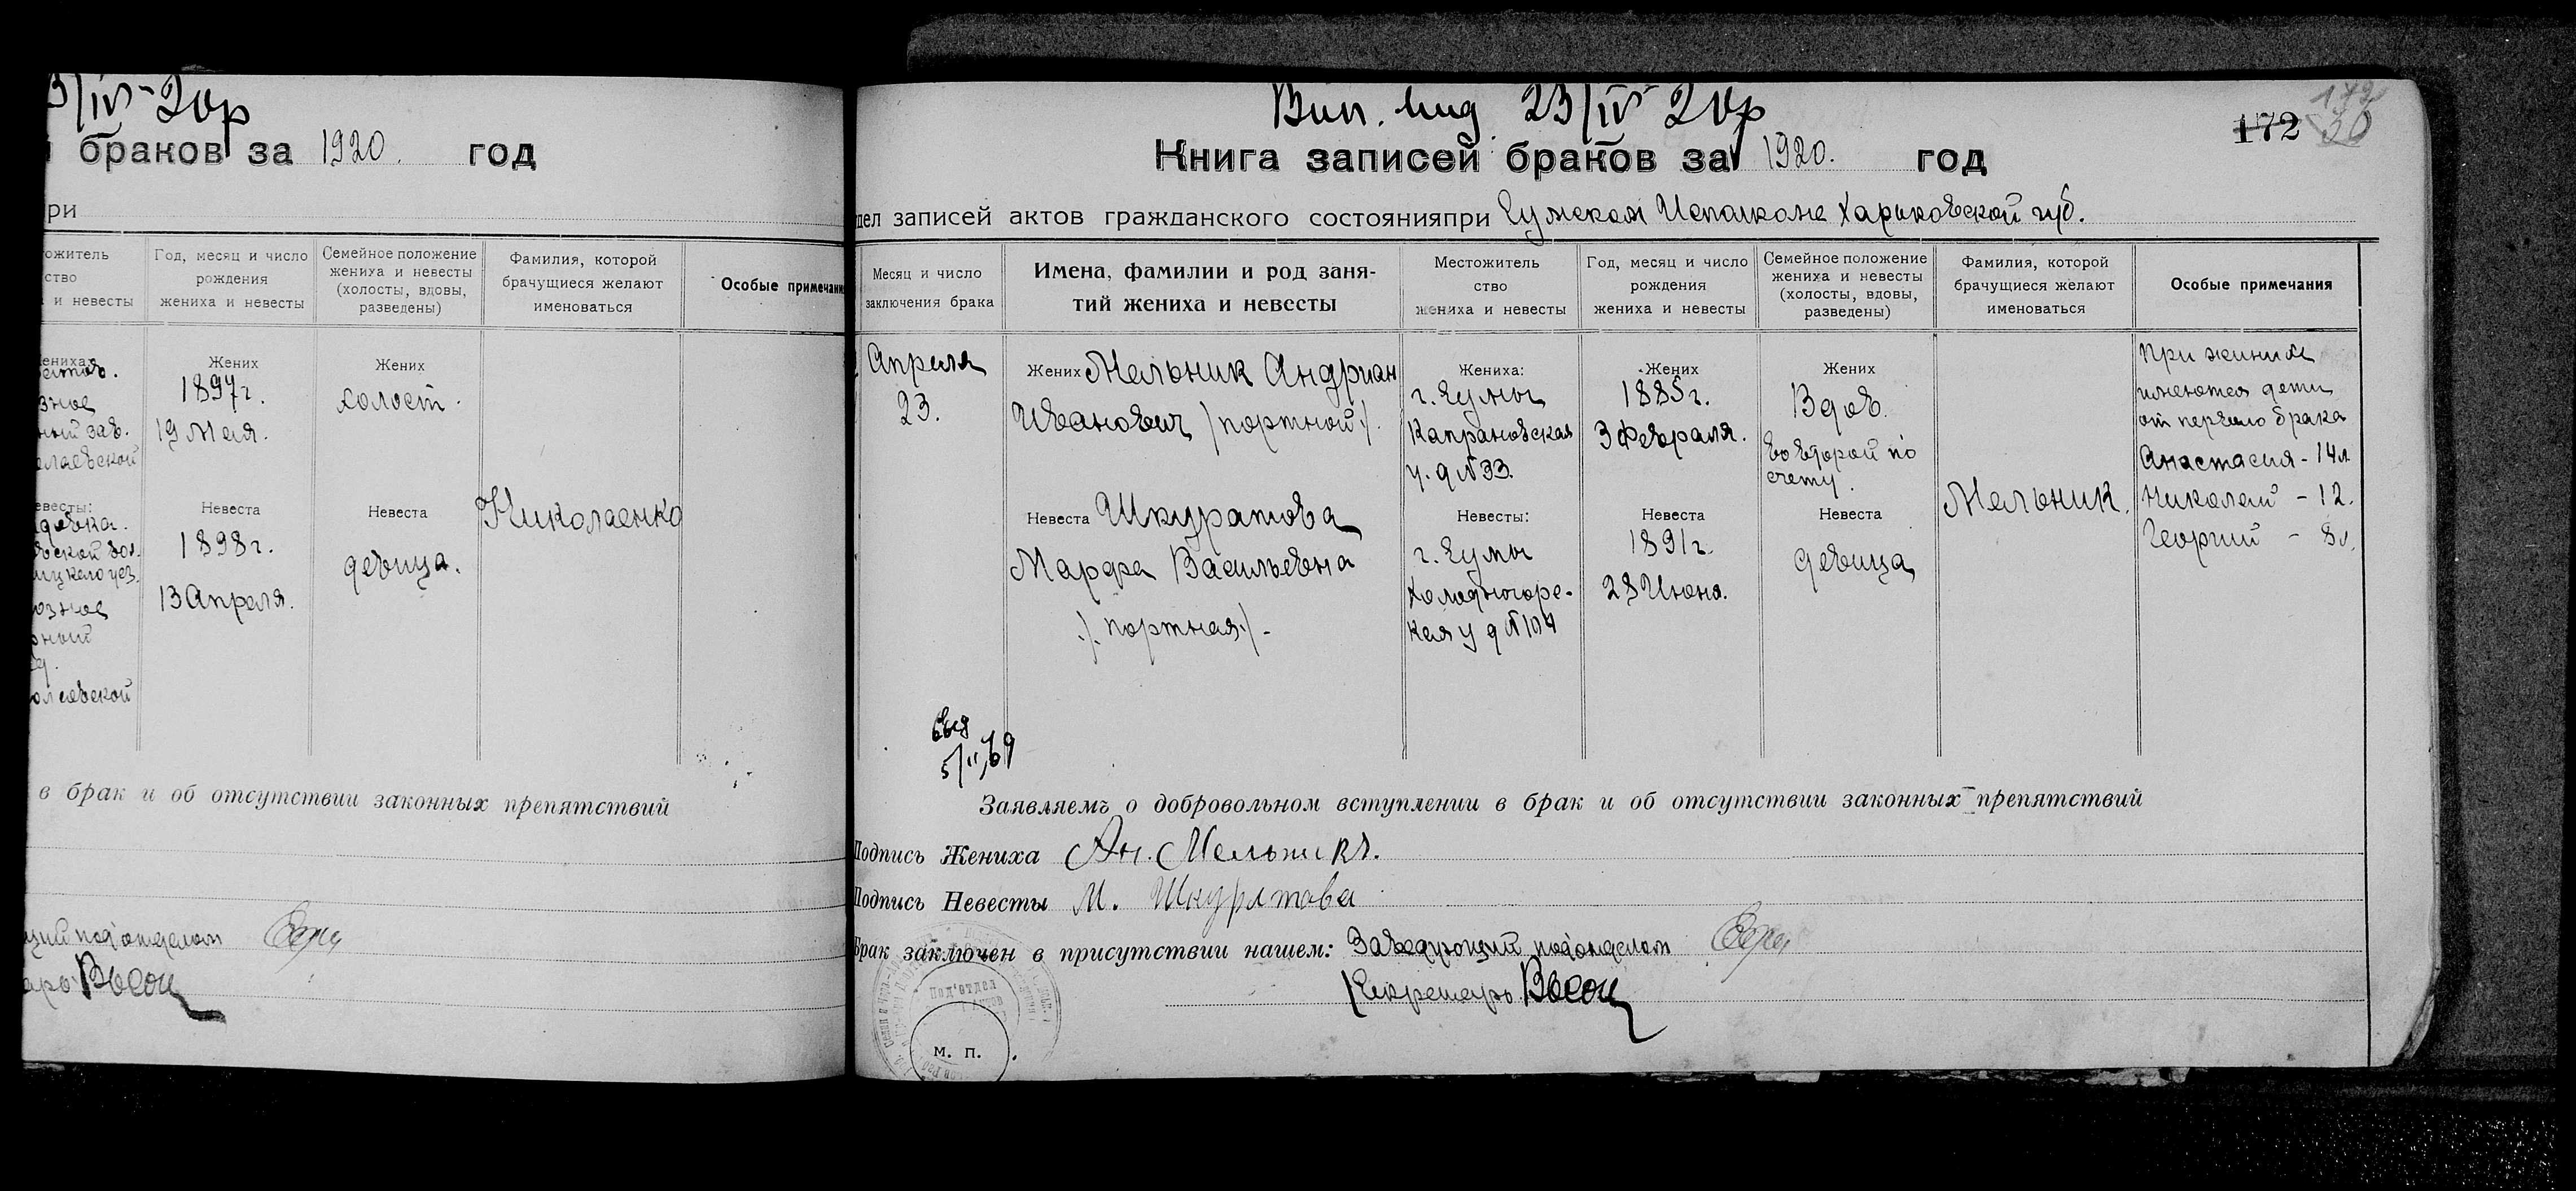 3/IV-20р
браков за 1920. год
ри
ожитель
ство
и невесты
Год, месяц и число
рождения
жениха и невесты
Семейное положение
жениха и невесты
(холосты, вдовы,
разведены)
Фамилия, которой
брачущиеся желают
именоваться
Особые примечани
Жених
1897г.
19 Мая.
Жених
холост.
Невеста
1898г.
13 Апреля.
Невеста
девица.
Николаенко
в брак и об отсутствии законных препятствий
щий под'отделом
Вип. вид. 23/IV 20р
172
30
Книга записей браков за 1920. год
дел записей актов гражданского состоянияпри Сумском Исполкоме Харьковской губ.
Месяц и число
заключения брака
Имена, фамилии и род заня-
тий жениха и невесты
Местожитель
ство
жениха и невесты
Год, месяц и число
рождения
жениха и невесты
Семейное положение
жениха и невесты
(холосты, вдовы,
разведены)
Фамилия, которой
брачущиеся желают
именоваться
Особые примечания
Апреля
23.
Жених Мельник Андриан
Иванович /портной/.
Невеста Шкуратова
Марфа Васильевна
/. портная./.
Жениха:
г. Сумы
Капрановская
у. д N 33.
Невесты:
г. Сумы
Холодногорс-
кая у д N 104
Жених
1885г.
3 Февраля.
Невеста
1891г.
28 Июня.
Жених
Вдов.
Во второй по
счету.
Невеста
девица
Мельник.
При женихе
имеются дети
от первого брака
Анастасия - 14л.
Николай - 12.
Георгий - 8л.
5/II 69
Заявляемъ о добровольном вступлении в брак и об отсутствии законных препятствий
Подпись Жениха Ан. Мельникъ.
Подпись Невесты М. Шкуратова
Брак заключен в присутствии нашем: Заведующий под'отделом
Секретарь
Под'отдел
м. п.